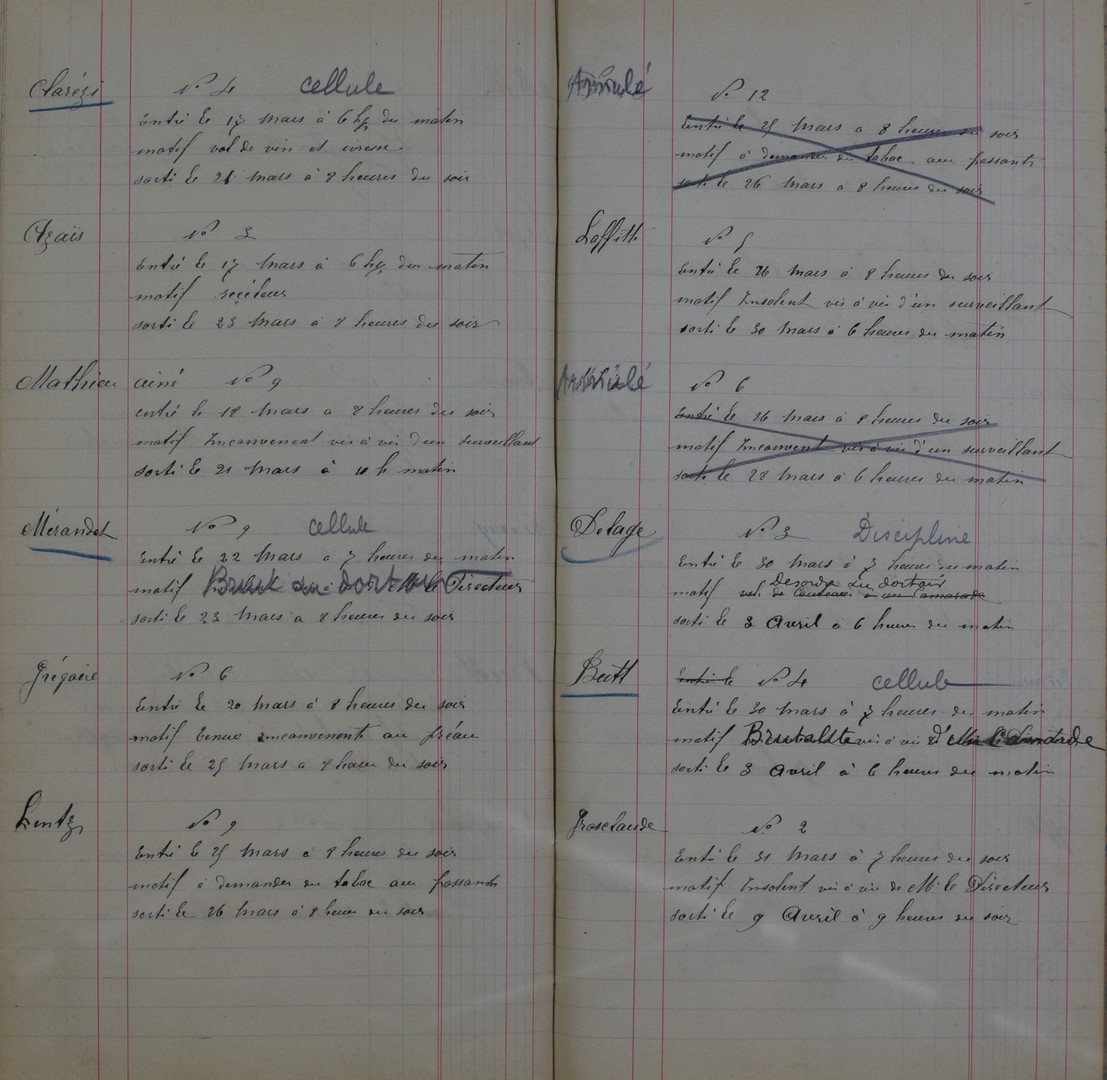 Clarézi N° 4 cellule
Entré le 17 Mars à 6 h du matin
motif vol de vin et ivresse
sorti le 21 Mars à 8 heures du soir
Azaïs N° 3
Entré le 17 Mars à 6 h du matin
motif
sorti le 23 Mars à 8 heures du soir
Mathieu ainé N° 9
entré le 18 Mars a 8 heures du soir
motif Inconvenent vis à vis d'un surveillant
sorti le 21 Mars à 10 h matin
Mérandet N° 9 cellule
Entré le 22 Mars a 7 heures du matin
motif Bruit au dortoir Directeur
sorti le 23 Mars a 8 heures du soir
Grégoire N° 6
Entré le 20 Mars à 8 heures du soir
motif tenue inconvenente au préau
sorti le 25 Mars a 8 heures du soir
Lentz N° 9
Entré le 25 Mars a 8 heures du soir
motif à demander du tabac aux passants
sorti le 26 Mars à 8 heures du soir
Annulé N° 12
Entré le 25 Mars a 8 heures du soir
motif à demander du tabac aux passants
sorti le 26 Mars a 8 heures du soir
Laffitte N° 5
Entré le 26 Mars à 8 heures du soir
motif Insolent vis à vis d'un surveillant
sorti le 30 Mars à 6 heures du matin
Annulé N° 6
Entré le 26 Mars à 8 heures du soir
motif Inconvent vis à vis d'un surveillant
sorti le 28 Mars à 6 heures du matin
Delage N° 3 Discipline
Entré le 30 Mars à 7 heures du matin
Desordre au dortoir
motif vol de couteaux à un Camarade
sorti le 3 Avril à 6 heures du matin
Beutt entré le N° 4 cellule
Entré le 30 Mars à 7 heures du matin
motif Brutalité vis à vis d' Camarade
sorti le 3 Avril à 6 heures du matin
Groselaude N° 2
Entré le 31 Mars à 7 heures du soir
motif Insolent vis à vis de Mr le Directeur
sorti le 9 Avril à 9 heures du soir